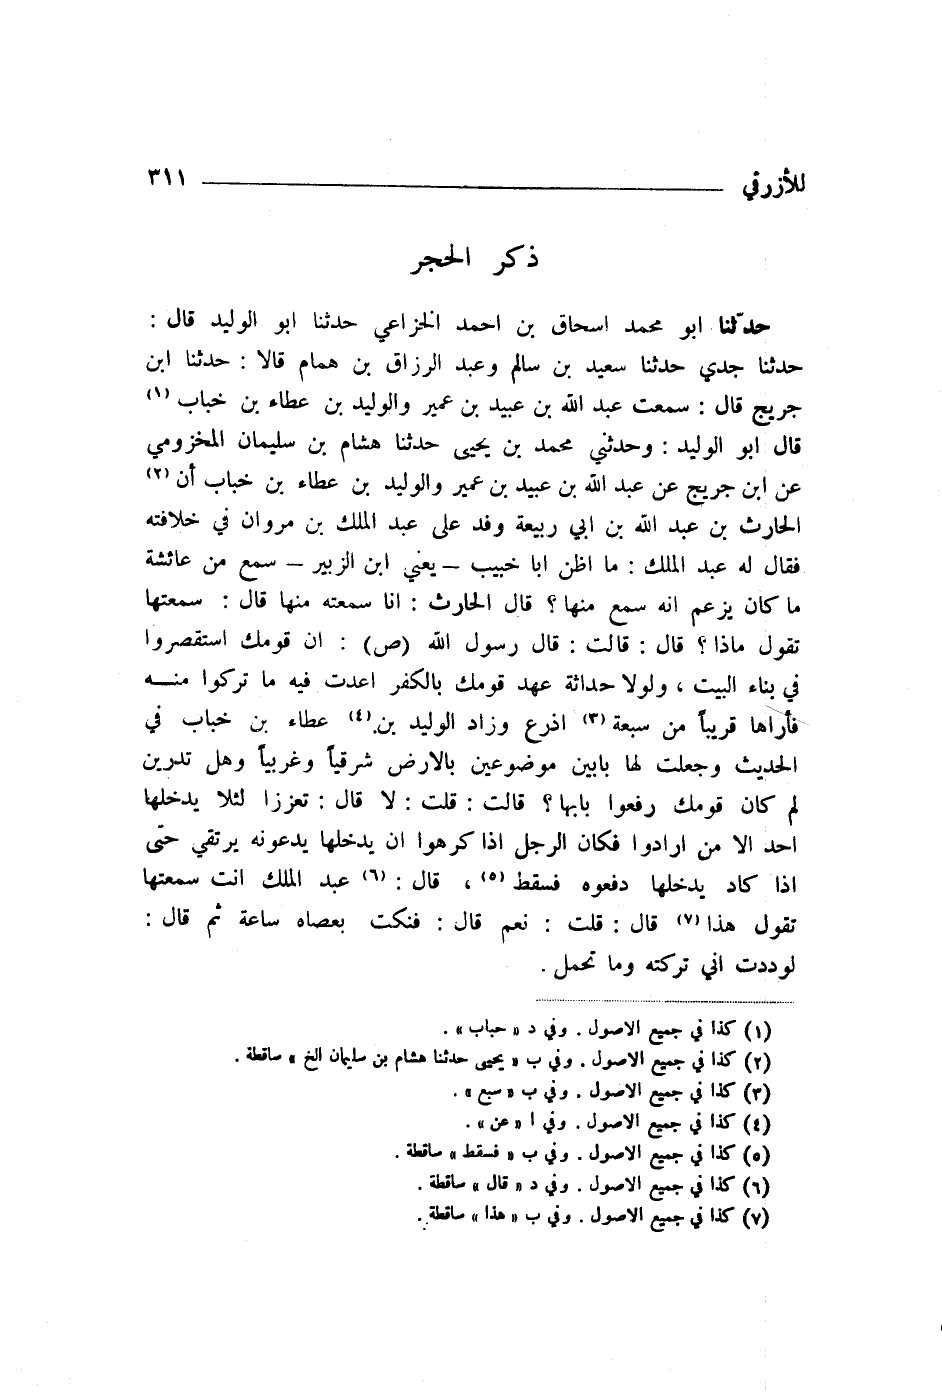 للأزرقي ٣١١
ذكر الحجر
حدّثنا ابو محمد اسحاق بن احمد الخزاعي حدثنا ابو الوليد قال :
حدثنا جدي حدثنا سعيد بن سالم وعبد الرزاق بن همام قالا : حدثنا ابن
جريج قال : سمعت عبد الله بن عبيد بن عمير والوليد بن عطاء بن خباب (١)
قال ابو الوليد : وحدثني محمد بن يحيى حدثنا هشام بن سليمان المخزومي
عن ابن جريج عن عبد الله بن عبيد بن عمير والوليد بن عطاء بن خباب أن (٢)
الحارث بن عبد الله بن ابي ربيعة وفد على عبد الملك بن مروان في خلافته
فقال له عبد الملك : ما اظن ابا خبيب – يعني ابن الزبير – سمع من عائشة
ما كان يزعم انه سمع منها ؟ قال الحارث : انا سمعته منها قال : سمعتها
تقول ماذا ؟ قال : قالت : قال رسول الله (ص) : ان قومك استقصروا
في بناء البيت ، ولولا حداثة عهد قومك بالكفر اعدت فيه ما تركوا منه
فأراها قريباً من سبعة (٣) اذرع وزاد الوليد بن (٤) عطاء بن خباب في
الحديث وجعلت لها بابين موضوعين بالارض شرقياً وغربياً وهل تدرين
لم كان قومك رفعوا بابها ؟ قالت : قلت : لا قال : تعززا لئلا يدخلها
احد الا من ارادوا فكان الرجل اذا كرهوا ان يدخلها يدعونه يرتقي حتّى
اذا كاد يدخلها دفعوه فسقط (٥) ، قال : (٦) عبد الملك انت سمعتها
تقول هذا (٧) قال : قلت : نعم قال : فنكت بعصاه ساعة ثم قال :
لوددت اني تركته وما تحمل .
(١) كذا في جميع الاصول . وفي د « حباب » .
(٢) كذا في جميع الاصول . وفي ب « يحيى حدثنا هشام بن سليمان الخ » ساقطة .
(٣) كذا في جميع الاصول . وفي ب « سبع » .
(٤) كذا في جميع الاصول . وفي ا « عن » .
(٥) كذا في جميع الاصول . وفي ب « فسقط » ساقطة .
(٦) كذا في جميع الاصول . وفي د « قال » ساقطة .
(٧) كذا في جميع الاصول . وفي ب « هذا » ساقطة .